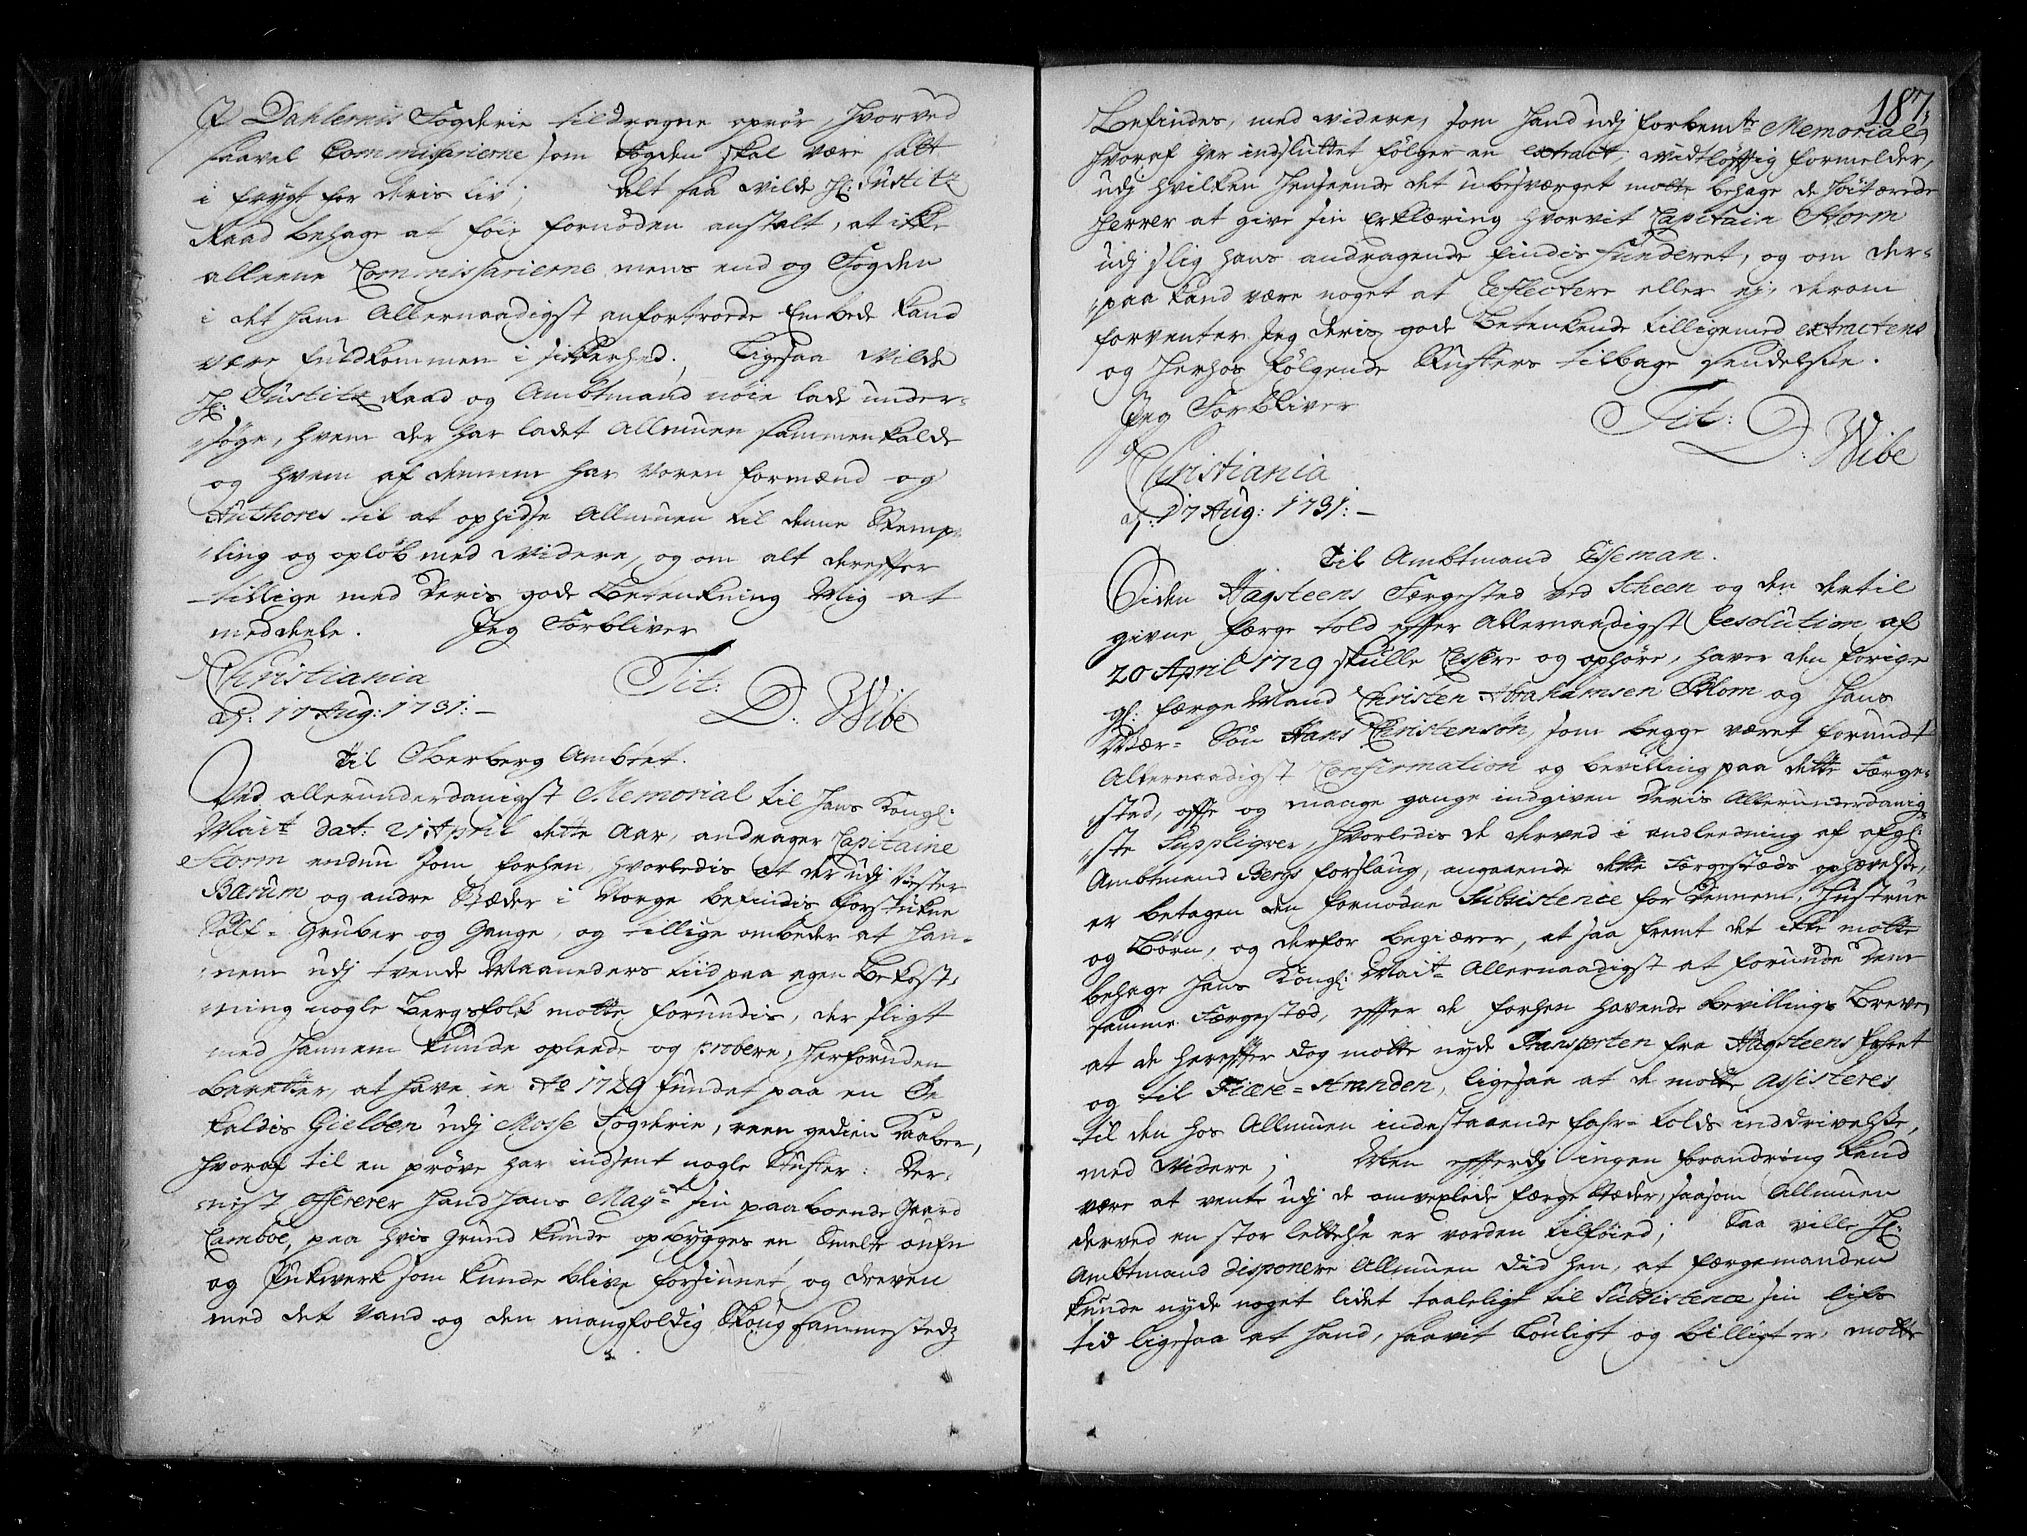 J Dahlernis Fogderie tildragne oprør, hvorved
saavel Commissarierne som Fogden skal være satt
i frygt for deris liv; alt saa wilde Hr: Justitz
Raad behage at føie fornøden anstalt, at ikke
alleene Commissarierne mens end og Fogden
i det ham Allernaadigst anfortroede Embede kand
være fuldkommen i sikkerhed. Ligesaa wilde
Hr: Justitz Raad og Ambtmand nøie lade under-
søge, hvem der har ladet Allmuen sammenkalde
og hvem af dennem har voren formænd og
Authores til at ophidse Allmuen til denne Stemp-
ling og opløb med widere, og om alt derefter
tillige med Deris gode Betenkning Mig at
meddeele. Jeg Forbliver
Christiania Tit:
d: 17 Aug: 1731:— D. Wibe
Til Oberberg Ambtet.
Ved allerunderdanigst Memorial til Hans Kongl:
Mait dat: 21 April dette Aar, andrager Capitaine
Storm endnu som forhen, hvorledis at der udj Vester
Barum og andre Stæder i Norge befindis forskiælne
Sølf- Gruber og Gange, og tillige ombeder at Han-
nem udj tvende Maaneders tiid paa egen Bekost-
ning nogle Bergfolk motte forundis, der sligt
med Hannem kunde opleede og probere, Herforuden
beretter, at have in Ao 1729 fundet paa en Øe
kaldis Gieløen udj Mosse Fogderie, reen gedien Kaaber,
hvoraf til en prøve har indsent nogle Stuffer: Der-
nest offererer Hand Hans Mayt sin paaboende Gaard
Camboe, paa hvis grund kunde opbygges en Smelte oufn
og Pukwerk som kunde blive forsiunet og dreven
med det Vand og den mangfoldig Skoug sammestedz
187.
Befindes, med widere, som Hand udj forbemte Memorial,
hvoraf her indsluttet følger en extract, vidtløfftig formelder,
udj hvilken Henseende det ubesværget motte behage de Høitærede
Herrer at give sin Erklæring hvorvit Capitain Storm
udj slig hans andragende findis funderet, og om der-
paa kand være noget at reflectere eller ej, derom
forventer Jeg deris gode Betenkende tilligemed extractens
og herhos følgende Stuffers tilbage sendelse.
Jeg Forbliver Tit:
Christiania D. Wibe
d: 17 Aug: 1731:—
Til Ambtmand Esseman.
Siden Hagsteens Færgested ved Scheen og den dertil
givne færge told efter Allernaadigst Resolution af
20 April 1729 skulle Cessere og ophøre, haver den forige
gl: færge Mand Christen Abrahamsen Blom og Hans
Svær- Søn Hans Christensøn, som begge været forundt
Allernaadigst Confirmation og bevilling paa dette Færge-
sted, ofte og mange gange indgiven Deris Allerunderdanig-
ste Suppliqver, hvorledis de derved i anleedning af afgl:
Ambtmand Bergs forslaug, angaaende dette Færgestæds ophævelse,
er betagen den fornødne Subsistence for Dennem, Hustrue
og Børn, og derfor begiærer, at saa fremt det ikke motte
behage Hans Kongl: Mait Allernaadigst at forunde Dem
samme Færgestæd, efter de forhen havende bevillings Breve,
at de herefter dog motte nyde Transporten fra Hagsteens fahret
og til Fiære-Stranden, ligesaa at de motte assisteres
til den hos Allmuen indestaaende fahr-tolds inddrivelse,
med videre; Men efterdj ingen forandring kand
være at vente udj de omvexlede færge Stæder, saasom Allmuen
derved en stor lettelse er vorden tilføied; Saa ville Hr:
Ambtmand disponere Allmuen did hen, at færgemanden
kunde nyde noget lidet taaleligt til Subsistence sin lifs
tid ligesaa at Hand, saavit Louligt og billigt er, motte